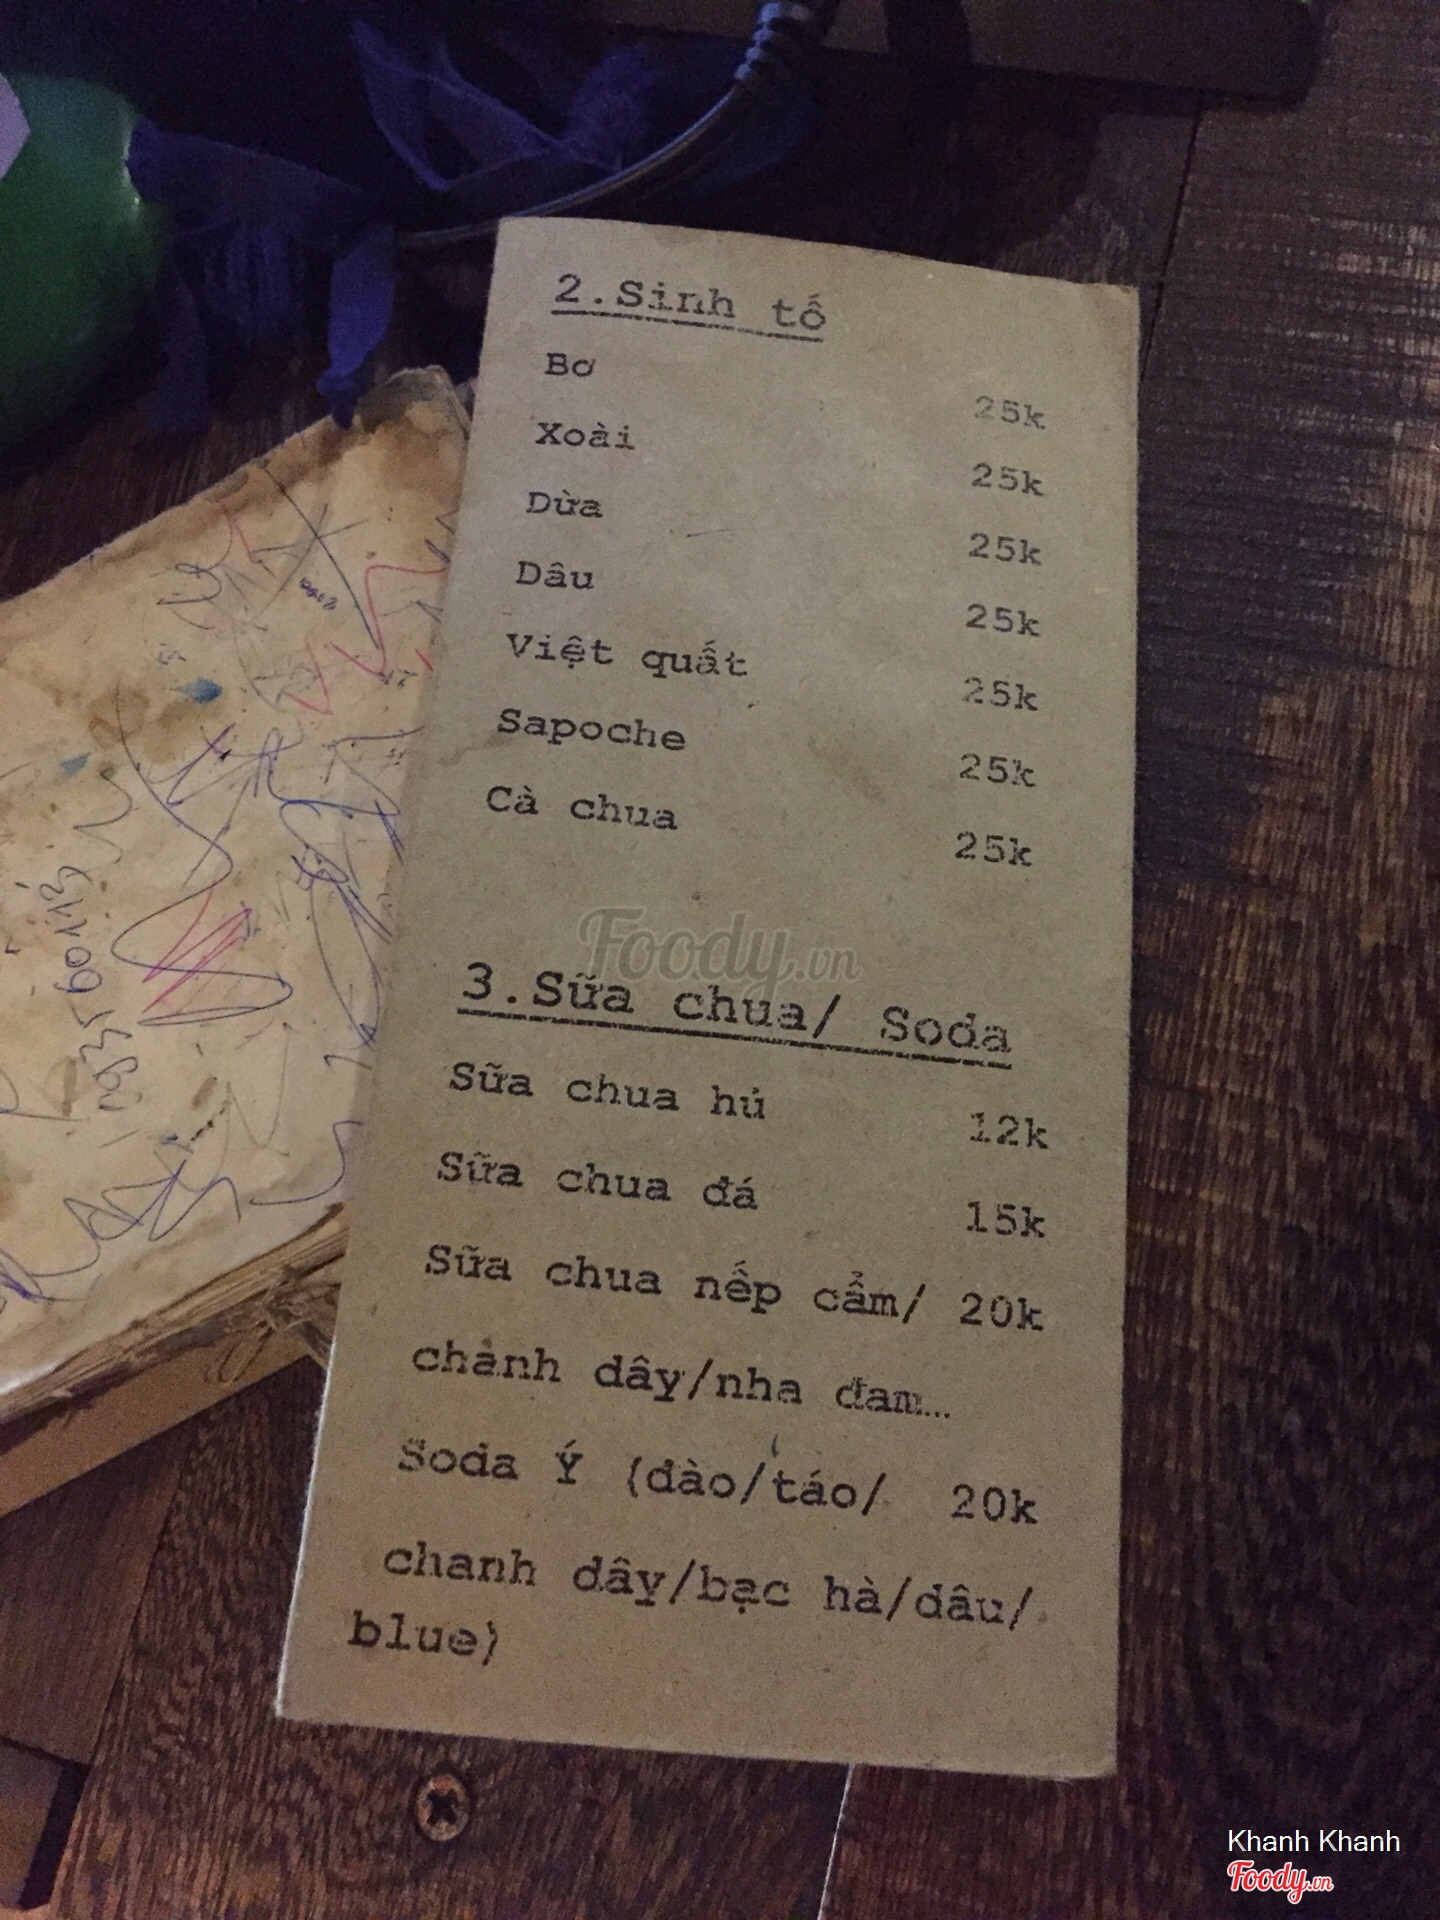 2.Sinh tố
Bơ 25k
Xoài 25k
Dừa 25k
Dâu 25k
Việt quất 25k
Sapoche 25k
Cà chua 25k
Foody.vn
3.Sữa chua/ Soda
Sữa chua hủ 12k
Sữa chua đá 15k
Sữa chua nếp cẩm/ 20k
chành dây/nha đam...
Soda Ý (đào/táo/ 20k
chanh dây/bạc hà/dâu/
blue)
Khanh Khanh
Foody.vn